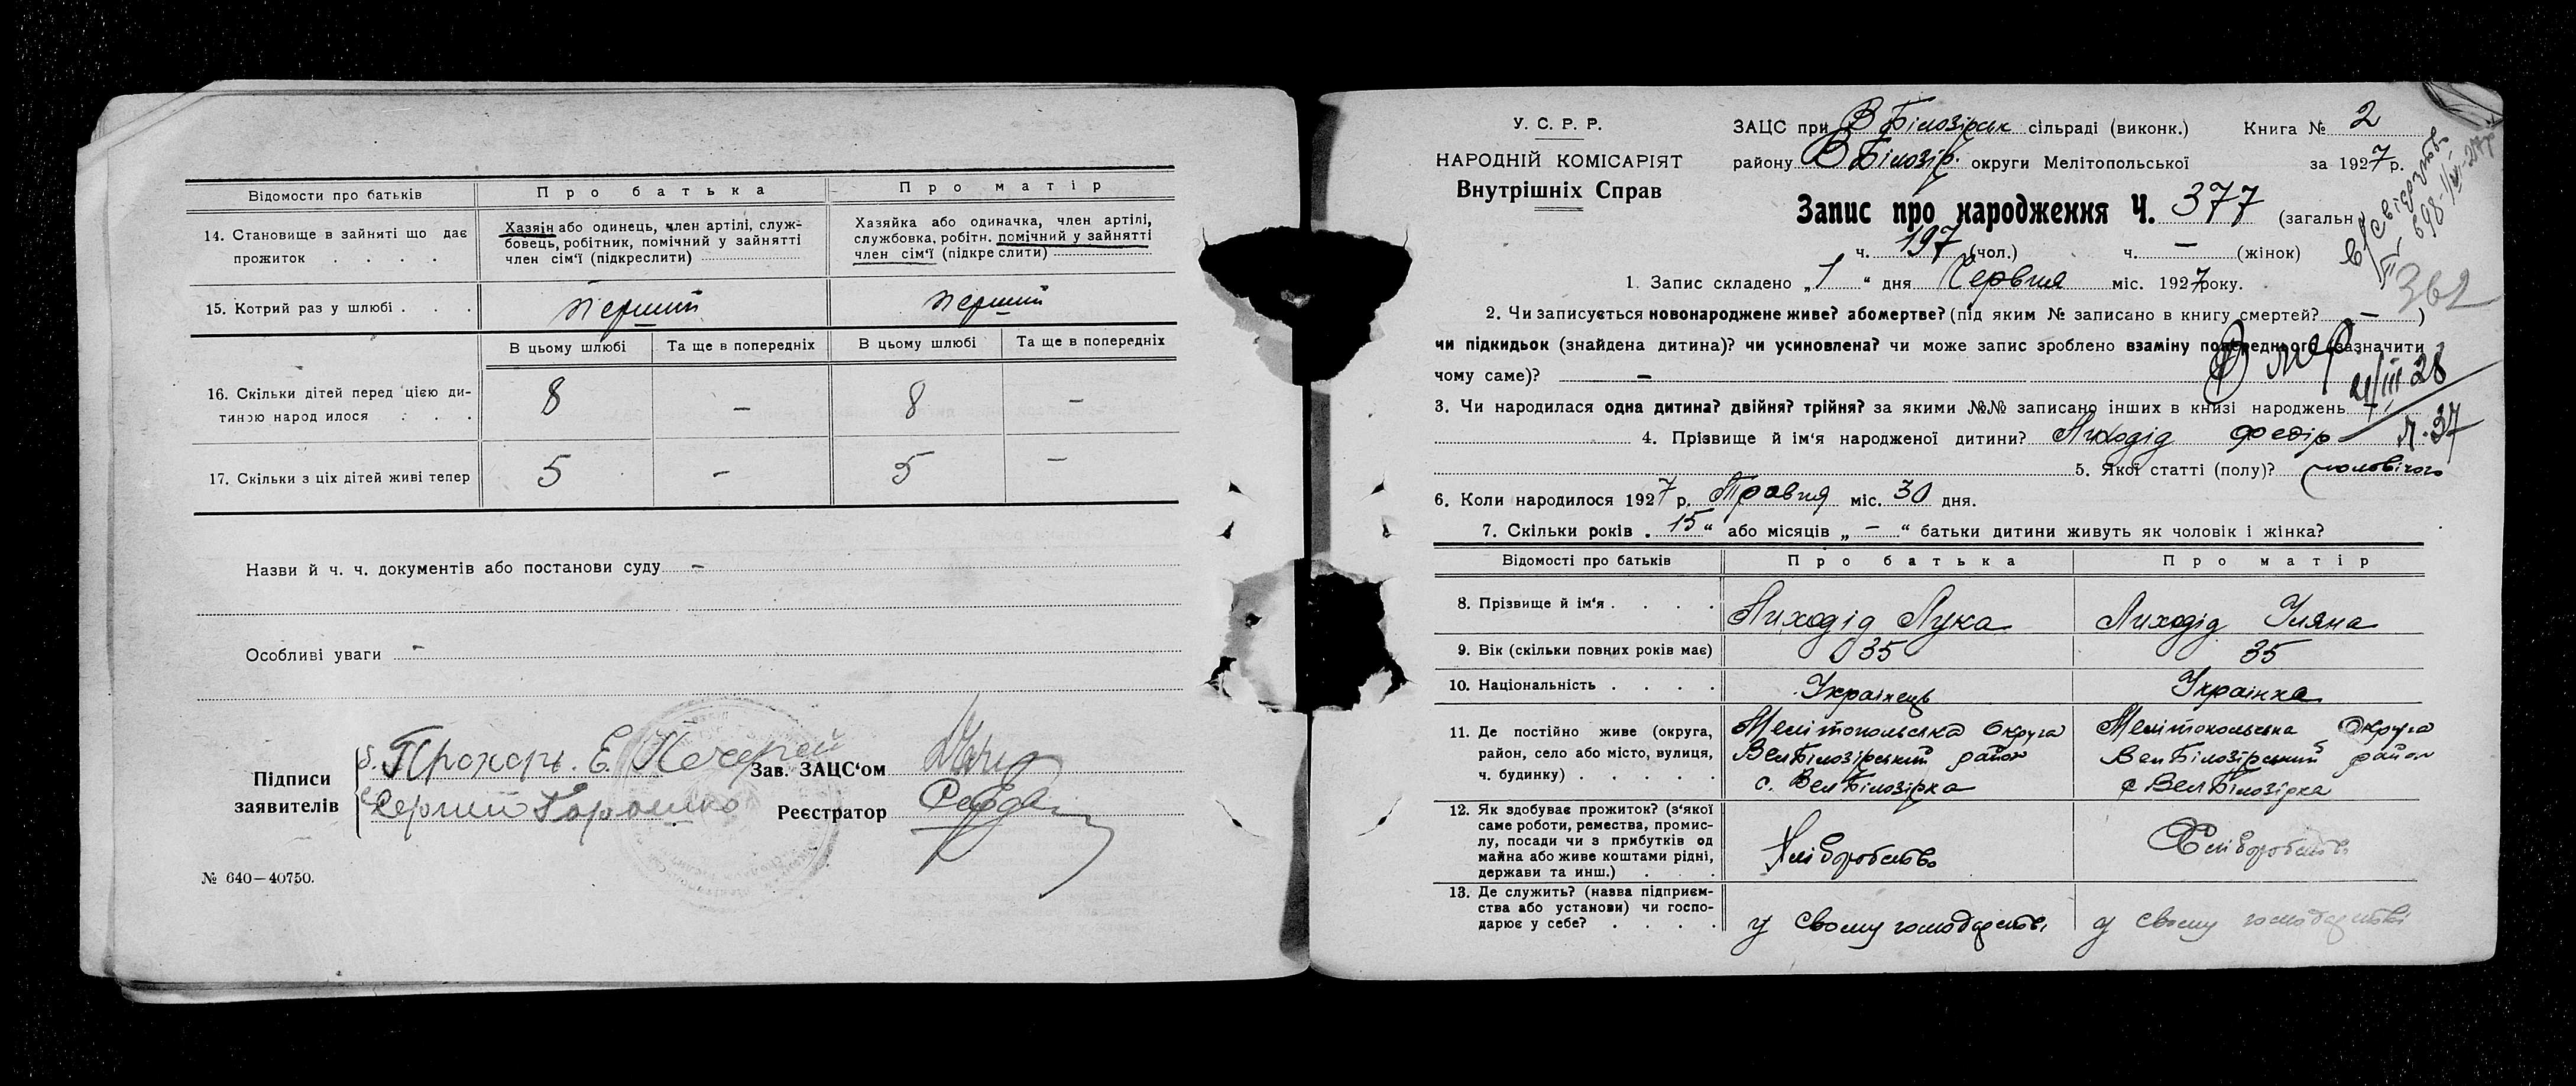 Відомости про батьків
Про батька
Про матір
14. Становище в зайняті що дає прожиток . . . .
Хазяін або одинець, член артілі, служ-
бовець, робітник, помічний у зайнятті
член сім'ї (підкреслити)
Хазяйка або одиначка, член артілі,
службовка, робітн. помічний у зайнятті
член сім'ї (підкреслити)
15. Котрий раз у шлюбі . . .
перший
перший
В цьому шлюбі
Та ще в попередніх
В цьому шлюбі
Та ще в попередніх
16. Скільки дітей перед цією ди-
тиною народ илося . . .
8
–
8
–
17. Скільки з ціх дітей живі тепер
5
–
5
–
Назви й ч. ч. документів або постанови суду –
Особливі уваги –
Підписи
заявителів
Зав. ЗАЦС'ом
Сергий
Реєстратор
№ 640—40750.
У. С. Р. Р.
НАРОДНІЙ КОМІСАРІЯТ
Внутрішніх Справ
ЗАЦС при В Білозірськ сільраді (виконк.) Книга № 2
району В Білозір. округи Мелітопольської за 1927 р.
Запис про народження Ч. 377 (загальн
ч. 197 (чол.) ч. — (жінок)
362
1. Запис складено „1“ дня Червня міс. 1927 року.
2. Чи записується новонароджене живе? або мертве? (під яким № записано в книгу смертей? – )
чи підкидьок (знайдена дитина)? чи усиновлена? чи може запис зроблено взаміну попереднього (зазначити
чому саме)? –
умер
21/III 28
Ч. 37
3. Чи народилася одна дитина? двійня? трійня? за якими №№ записано інших в книзі народжень
4. Прізвище й ім'я народженої дитини? Лиходід Федір
5. Якої статті (полу)? чоловічого
6. Коли народилося 1927 р. Травня міс. 30 дня.
7. Скільки років „15“ або місяців „–“ батьки дитини живуть як чоловік і жінка?
Відомості про батьків
Про батька
Про матір
8. Прізвище й ім'я . . . .
Лиходід Лука
Лиходід Уляна
9. Вік (скільки повних років має)
35
35
10. Національність . . . .
Українець
Українка
11. Де постійно живе (округа,
район, село або місто, вулиця,
ч. будинку) . . . . .
Мелітопольська Округа
ВелБілозірський район
с. ВелБілозірка
Мелітопольська Округа
ВелБілозірський район
с ВелБілозірка
12. Як здобуває прожиток? (з'якої
саме роботи, ремества, промис-
лу, посади чи з прибутків од
майна або живе коштами рідні,
держави та инш.) . . .
Хліборобство
Хліборобств
13. Де служить? (назва підприєм-
ства або установи) чи госпо-
дарює у себе? . . . .
у свому господарстві
у свому господарстві